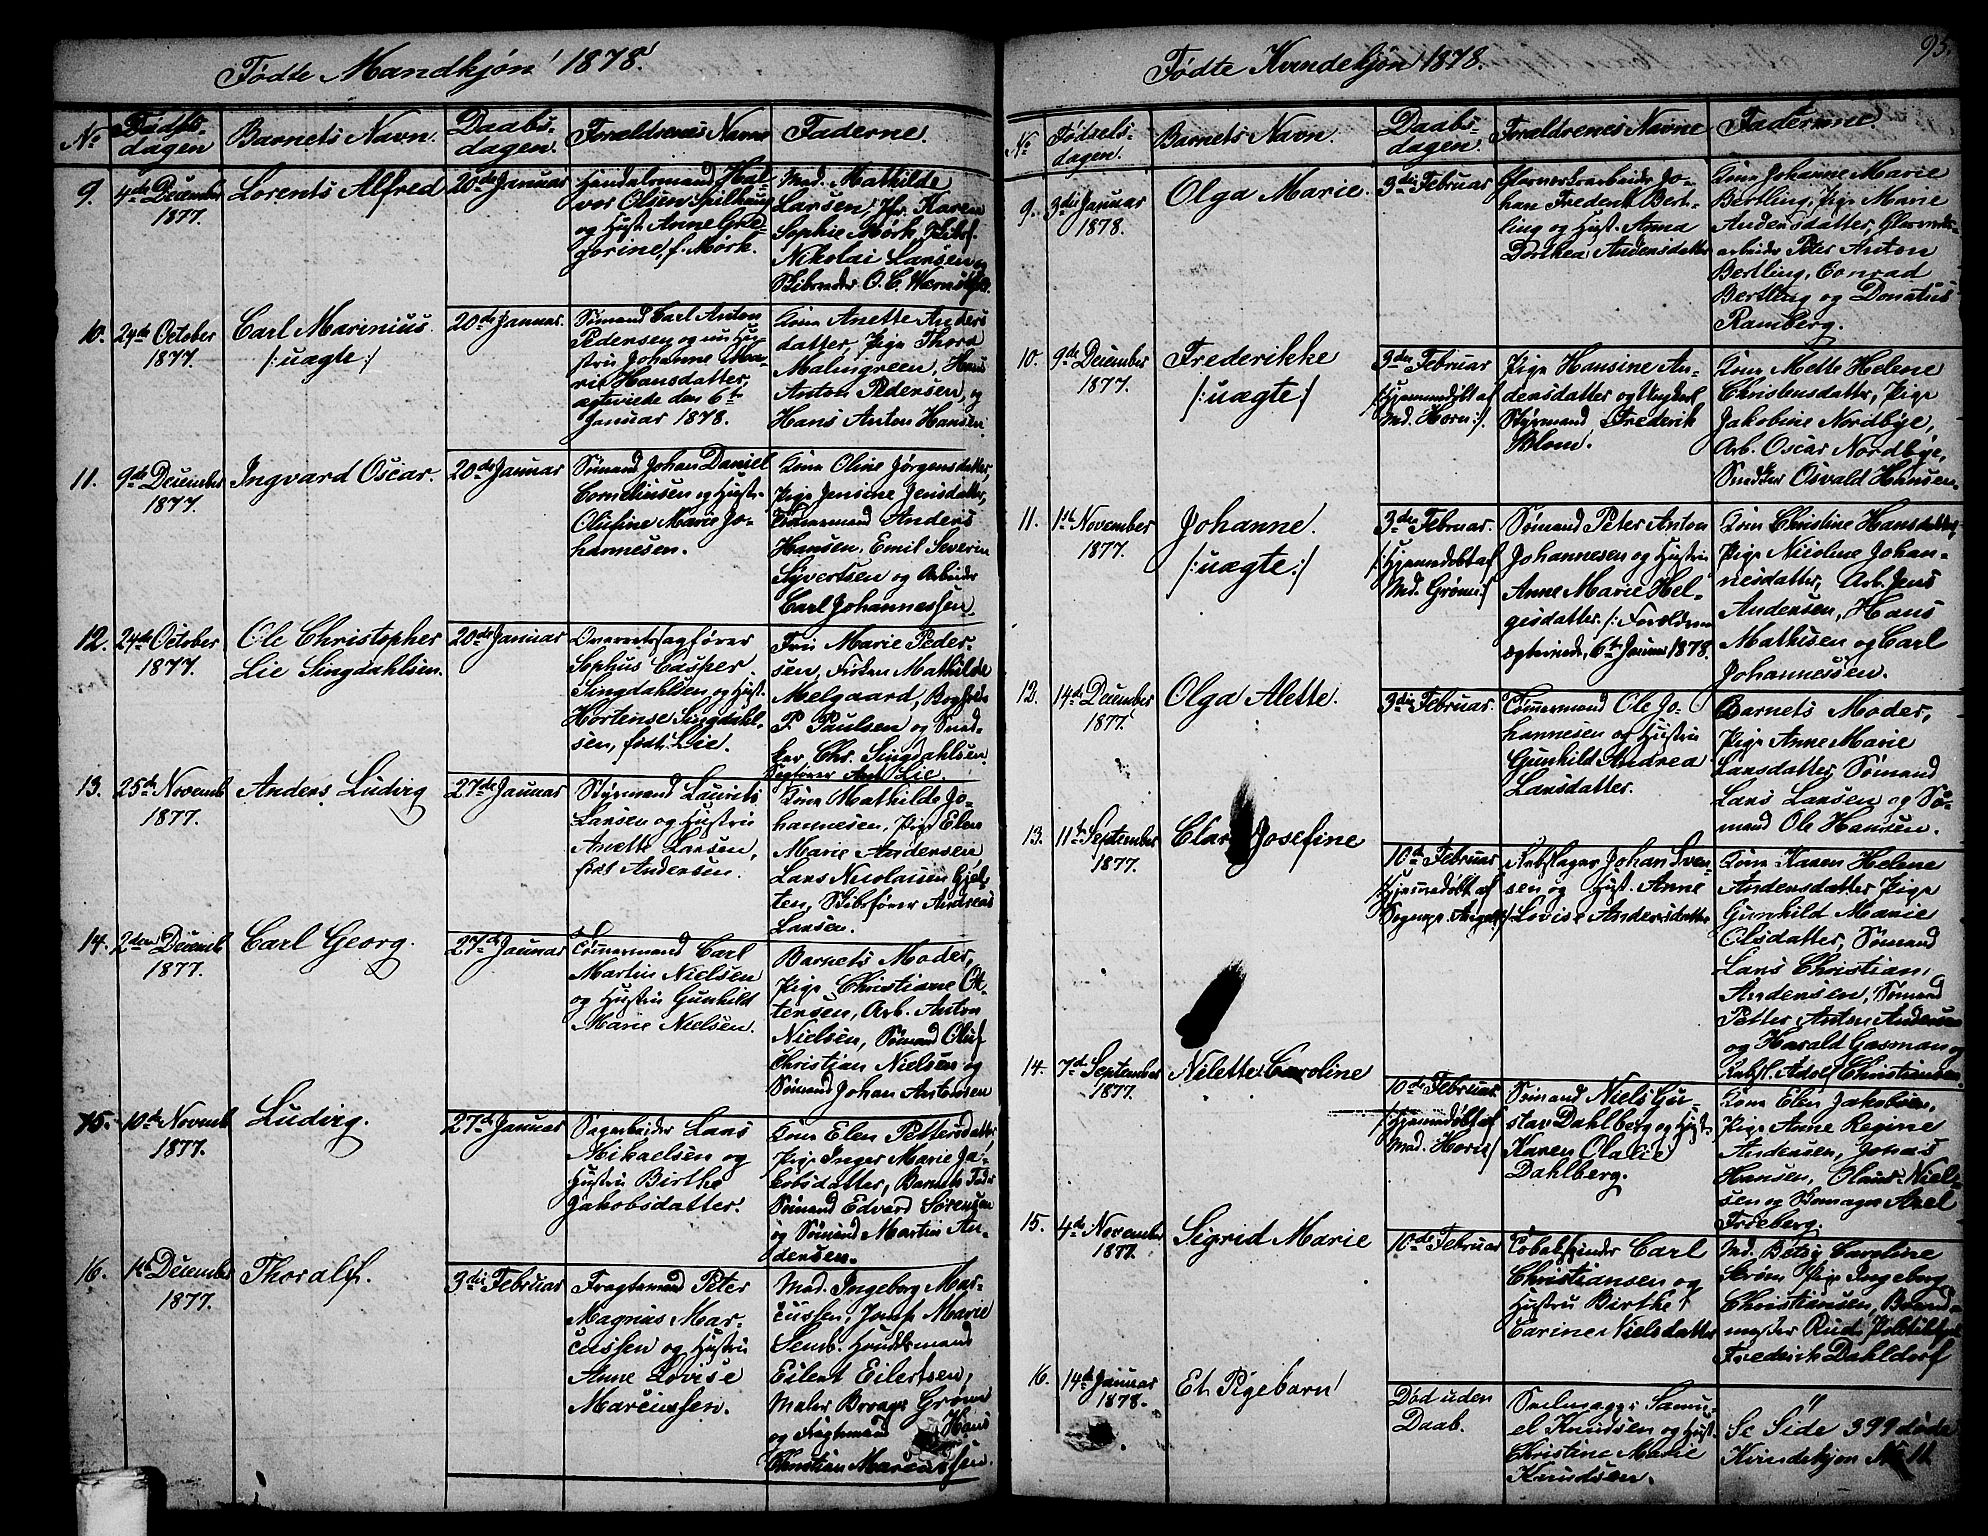 Fødte Mandkjøn 1878.
No
Fødsels-
dagen
Barnets Navn.
Daabs-
dagen.
Forældrenes Navne
Fadderne.
9.
4de December
1877.
Lorents Alfred
20de Januar
Handelsmand Hal-
vor Olsen Spilhaug
og Hust. Anne Gre-
gorine, f. Mørk.
Mad. Mathilde
Larsen, Karen
Sophie Mørk, Skibsf.
Nikolai Larsen og
Skibsreder O. C.
10.
29de October
1877.
Carl Marinius.
/:uægte:/
20de Januar.
Sømand Carl Anton
Pedersen og nu Hu-
stru Johanne Ma-
rie Hansdatter,
ægteviede den 6te
Januar 1878.
Kone Anette Anders
datter, Pige Thora
Malmgreen, Hans
Anton Pedersen, og
Hans Anton Hansen.
11.
9de December
1877.
Ingvard Oscar.
20de Januar
Sømand Johan Daniel
Corneliusen og Hustr.
Olufine Marie Jo-
hannesen.
Kone Oline Jørgensdatter,
Pige Jensine Jensdatter,
Tømmermand Anders
Hansen, Emil Severin
Syvertsen og Arbeider
Carl Johannessen.
12.
24de October
1877.
Ole Christopher
Lie Singdahlsen.
20de Januar
Overretssagfører
Sophus Casper
Singdahlsen og Hust.
Hortense Singdahl-
sen, født Lie.
Fru Marie Peder-
sen, Frøken Mathilde
Melgaard,
P. Paulsen og Sned-
ker Chr. Singdahlsen.
Sagfører Lie.
13.
25de Novemb
1877.
Anders Ludvig
27de Januar
Styrmand Laurits
Larsen og Hustru
Anette Larsen,
født Andersen.
Kone Mathilde Jo-
hannesen, Pige Elen
Marie Andersen,
Lars Nicolaisen Gjel-
ten, Skibsfører Andreas
Larsen.
14.
2den Decemb
1877.
Carl Georg.
27de Januar
Tømmermand Carl
Martin Nielsen
og Hustru Gunhild
Marie Nielsen.
Barnets Moder,
Pige Christiane Ot-
tersen, Arb. Anton
Nielsen, Sømand Oluf
Christian Nielsen og
Sømand Johan Antonsen
15.
10de Novemb
1877.
Ludvig.
27de Januar
Sagarbeider Lars
Mikaelsen og
Hustru Birthe
Jakobsdatter.
Kone Elen Pettersdatter
Pige Inger Marie Ja-
kobsdatter, Barnets Fader
Sømand Edvard Sørensen
og Sømand Martin An-
dersen.
16.
1te December
1877.
Thoralf.
3die Februar
Fragtemand Peter
Magnus Mar-
cussen og Hustru
Anne Lovise
Marcussen.
Mad. Ingeborg Mar-
cussen, Jomf. Marie
Semb.
Eilert Eilertsen,
Maler Grøn
og Fragtemand Hans
Christian Marcussen.
95.
Fødte Kvindekjøn 1878.
No
Fødsels-
dagen.
Barnets Navn.
Daabs-
dagen.
Forældrenes Navne
Fadderne.
9.
3die Januar
1878.
Olga Marie.
3die Februar
Glasværksarbeider Jo-
han Frederik Bert-
ling og Hust. Anna
Dorthea Andersdatter
Kone Johanne Marie
Bertling, Pige Marie
Andersdatter, Glasværks-
arbeider Peter Anton
Bertling, Conrad
Bertling og Donatus
Ramberg.
10.
9de December
1877.
Frederikke
/:uægte:/
3die Februar
/:hjemmedøbt af
Md. Horn:/
Pige Hansine An-
dersdatter og Ungkarl
Styrmand Frederik
Blom.
Kone Mette Helene
Christensdatter, Pige
Jakobine Nordbye,
Arb. Oscar Nordbye,
Snedker Osvald Hansen.
11.
1te November
1877.
Johanne.
/:uægte:/
3die Februar.
/:hjemmedøbt af
Md. Grøn:/
Sømand Peter Anton
Johannesen og Hustru
Anne Marie Hel-
gesdatter. /:Forældrene
ægteviede 6te Januar 1878.
Kone Christine Hansdatter,
Pige Nicoline Johan-
nesdatter, Arb. Jens
Andersen, Hans
Mathisen og Carl
Johannessen.
12.
14de December
1877.
Olga Alette.
3die Februar.
Tømmermand Ole Jo-
hannesen og Hustru
Gunhild Andrea
Larsdatter.
Barnets Moder,
Pige Anne Marie
Larsdatter, Sømand
Lars Larsen og Sø-
mand Ole Hansen.
13.
11te September
1877.
Clara Josefine
10de Februar
/:hjemmedøbt af
Sognepr.
Rebslager Johan Sven-
sen og Hust. Anne
Lovise Andersdatter
Kone Karen Helene
Andersdatter, Pige
Gunhild Marie
Olsdatter, Sømand
Lars Christian
Andersen, Sømand
Petter Anton Andersen
og Harald Gasman og
Rebsl. Adolf Christiansen.
14.
7de September
1877.
Nilette Caroline
10de Februar
/:hjemmedøbt af
Mad. Horn:/
Sømand Niels Gu-
stav Dahlberg og Hust.
Karen Olalie
Dahlberg.
Kone Elen Jakobsen,
Pige Anne Regine
Andersen, Jonas
Hansen, Olaus Niel-
sen og Axel
Frieberg.
15.
4de November
1877.
Sigrid Marie
10de Februar
Tobakspinder Carl
Christiansen og
Hustru Birthe
Carine Nielsdatter
Md. Betsy Caroline
Strøm Pige Ingeborg
Christiansen, Brand-
mester Rud, Politibetj.
Frederik Dahldorf
16.
14de Januar
1878.
Et Pigebarn
Død uden
Daab.
Seilmager Samu-
el Knudsen og Hust.
Christine Marie
Knudsen.
"
Se Side 399 døde
Kvindekjøn No 11